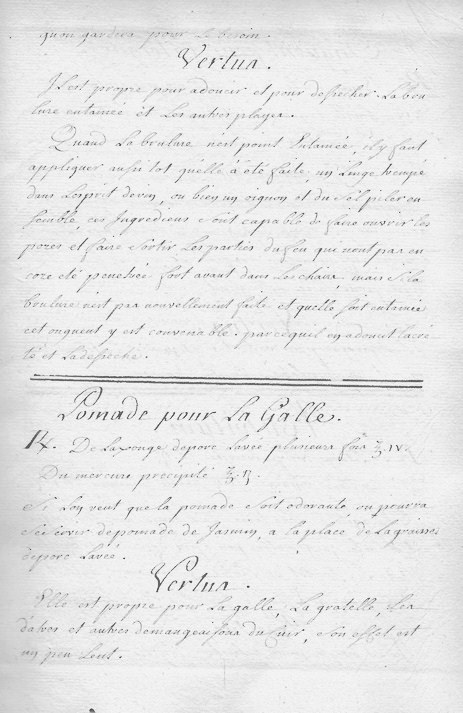 quon gardera pour le besoin.
Vertus.
Il est propre pour adoucir et pour desecher La bou
lure entamée et Les autres playes.
Quand La boulure n'est point Entamée, il y faut
appliquer aussi tot quelle à été faite, un Linge trempé
dans Lesprit devin, ou bien un oignon et du sel piler en
semble, ces Ingrediens sont capable de faire ouvrir les
pores et faire sortir Les parties du feu qui nont pas en
core eté penetrée fort avant dans Les chairs, mais si la
boulure n'est pas nouvellement faite et quelle soit entamée
cet onguent y est convenable. parcequil en adoucit lacre
té et La deseche.
Pomade pour La Galle.
℞. De Laxonge deporc Lavée plusieurs fois ℥.iv.
Du mercure precipité ℥.
Si Lon veut que la pomade soit odorante, on pourra
se servir depomade de Jasmin, a la place de La graisse
deporc Lavée.
Vertus.
Elle est propre pour La galle, La gratelle, Les
datres et autres demangeaisons du Cuir, son effet est
un peu Lent.